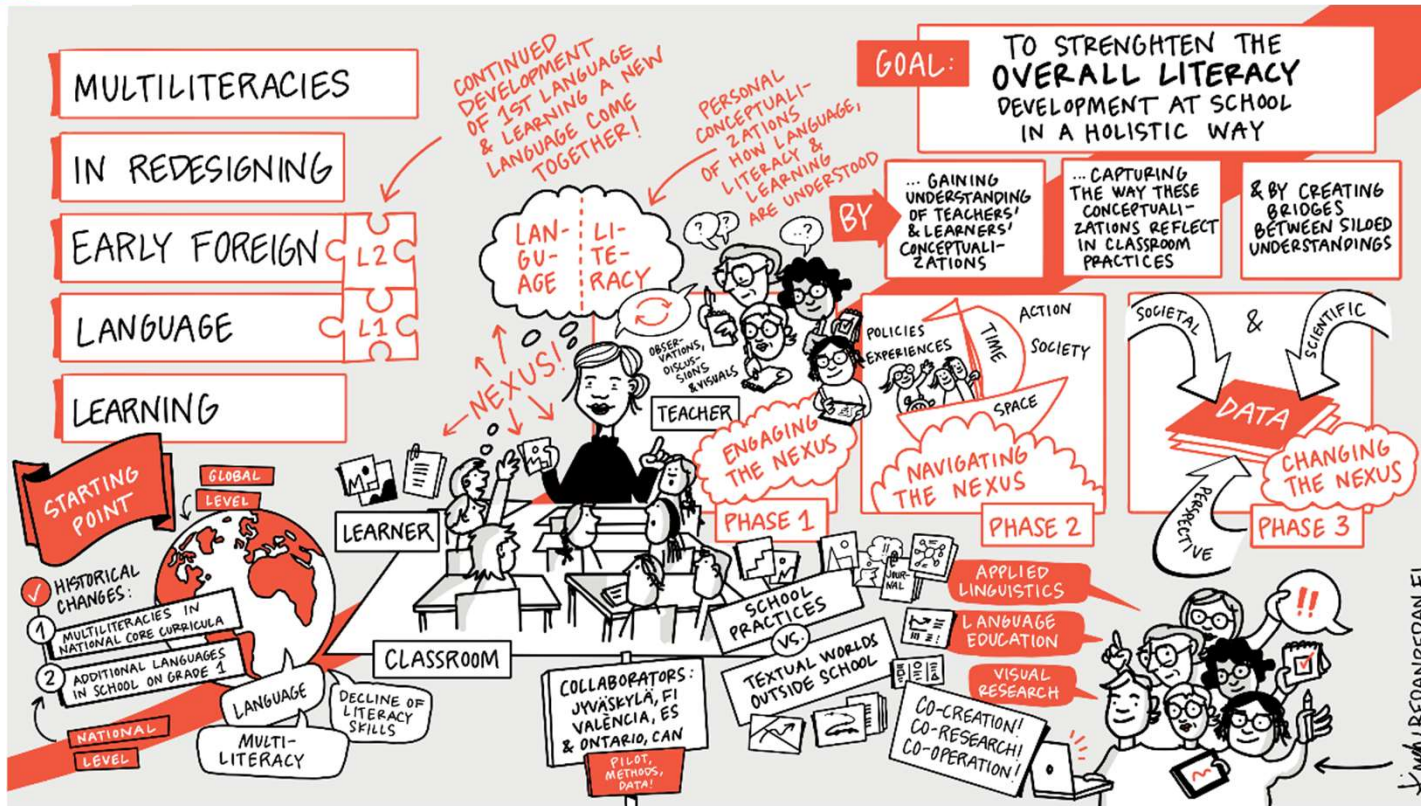 MULTILITERACIES
IN REDESIGNING
EARLY FOREIGN
LANGUAGE
LEARNING
L2
L1
CONTINUED
DEVELOPMENT
OF 1ST LANGUAGE
& LEARNING A NEW
LANGUAGE COME
TOGETHER!
PERSONAL
CONCEPTUALI-
ZATIONS
OF HOW LANGUAGE,
LITERACY &
LEARNING
ARE UNDERSTOOD
GOAL:
TO STRENGHTEN THE
OVERALL LITERACY
DEVELOPMENT AT SCHOOL
IN A HOLISTIC WAY
BY
... GAINING
UNDERSTANDING
OF TEACHERS'
& LEARNERS'
CONCEPTUALI-
ZATIONS
... CAPTURING
THE WAY THESE
CONCEPTUALI-
ZATIONS REFLECT
IN CLASSROOM
PRACTICES
& BY CREATING
BRIDGES
BETWEEN SILOED
UNDERSTANDINGS
LAN-
GU-
AGE
LI-
TE-
RACY
? ?
...?
OBSER-
VATIONS,
DISCUS-
SIONS
& VISUALS
NEXUS!
TEACHER
ENGAGING
THE NEXUS
PHASE 1
POLICIES
EXPERIENCES
TIME
ACTION
SOCIETY
SPACE
NAVIGATING
THE NEXUS
PHASE 2
SOCIETAL
&
SCIENTIFIC
DATA
PERSPECTIVE
CHANGING
THE NEXUS
PHASE 3
STARTING
POINT
GLOBAL
LEVEL
HISTORICAL
CHANGES:
1
MULTILITERACIES IN
NATIONAL CORE CURRICULA
2
ADDITIONAL LANGUAGES
IN SCHOOL ON GRADE 1
NATIONAL
LEVEL
LANGUAGE
MULTI-
LITERACY
DECLINE OF
LITERACY
SKILLS
LEARNER
CLASSROOM
COLLABORATORS:
JYVÄSKYLÄ, FI
VALÈNCIA, ES
& ONTARIO, CAN
PILOT,
METHODS,
DATA!
SCHOOL
PRACTICES
VS.
TEXTUAL WORLDS
OUTSIDE SCHOOL
JOUR-
NAL
APPLIED
LINGUISTICS
LANGUAGE
EDUCATION
VISUAL
RESEARCH
CO-CREATION!
CO-RESEARCH!
CO-OPERATION!
!!